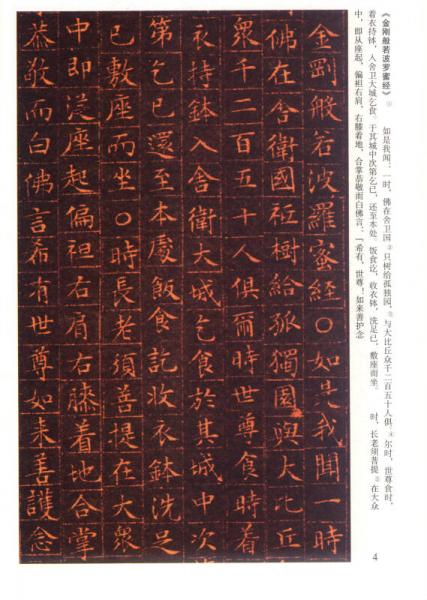 《金刚般若波罗蜜经》① 如是我闻：一时，佛在舍卫国②只树给孤独园，③与大比丘众千二百五十人俱。④尔时，世尊食时，
着衣持钵，入舍卫大城乞食。于其城中次第乞已，还至本处。饭食讫，收衣钵，洗足已，敷座而坐。 时，长老须菩提⑤在大众
中，即从座起，偏袒右肩，右膝着地，合掌恭敬而白佛言：“希有，世尊！如来善护念
金剛般若波羅蜜経〇如是我聞一時
佛在舍衛國祇樹給孤獨園與大比丘
衆千二百五十人俱爾時世尊食時着
衣持鉢入舍衛大城乞食於其城中次
第乞已還至本處飯食訖收衣鉢洗足
已敷座而坐〇時長老須菩提在大衆
中即從座起偏袒右肩右膝着地合掌
恭敬而白佛言希有世尊如来善護念
4